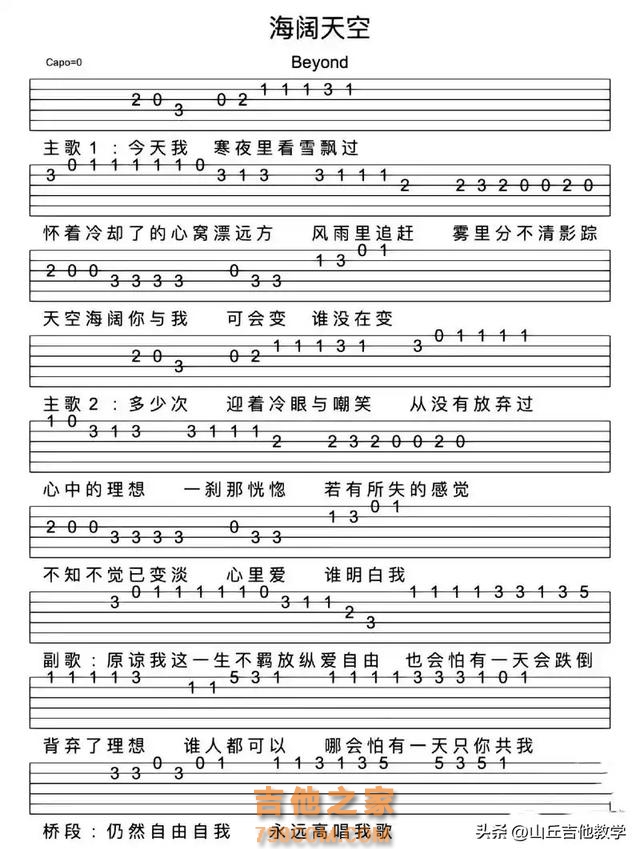 海阔天空
Beyond
Capo=0
2 0 3 0 2 1 1 1 3 1
主歌1：今天我 寒夜里看雪飘过
3 0 1 1 1 1 1 0 3 1 3 3 1 1 1 2 2 3 2 0 0 2 0
怀着冷却了的心窝漂远方 风雨里追赶 雾里分不清影踪
2 0 0 3 3 3 3 0 3 3 1 3 0 1
天空海阔你与我 可会变 谁没在变
2 0 3 0 2 1 1 1 3 1 3 0 1 1 1 1
主歌2：多少次 迎着冷眼与嘲笑 从没有放弃过
1 0 3 1 3 3 1 1 1 2 2 3 2 0 0 2 0
心中的理想 一刹那恍惚 若有所失的感觉
2 0 0 3 3 3 3 0 3 3 1 3 0 1
不知不觉已变淡 心里爱 谁明白我
3 0 1 1 1 1 1 0 3 1 1 2 3 1 1 1 1 3 3 1 3 5
副歌：原谅我这一生不羁放纵爱自由 也会怕有一天会跌倒
1 1 1 1 3 1 1 5 3 1 1 1 1 1 3 3 3 1 0 1
背弃了理想 谁人都可以 哪会怕有一天只你共我
3 3 0 3 0 1 1 1 3 1 3 5 5 3 5 1
吉他之家
桥段：仍然自由自我 永远高唱我歌
头条@山丘吉他教学